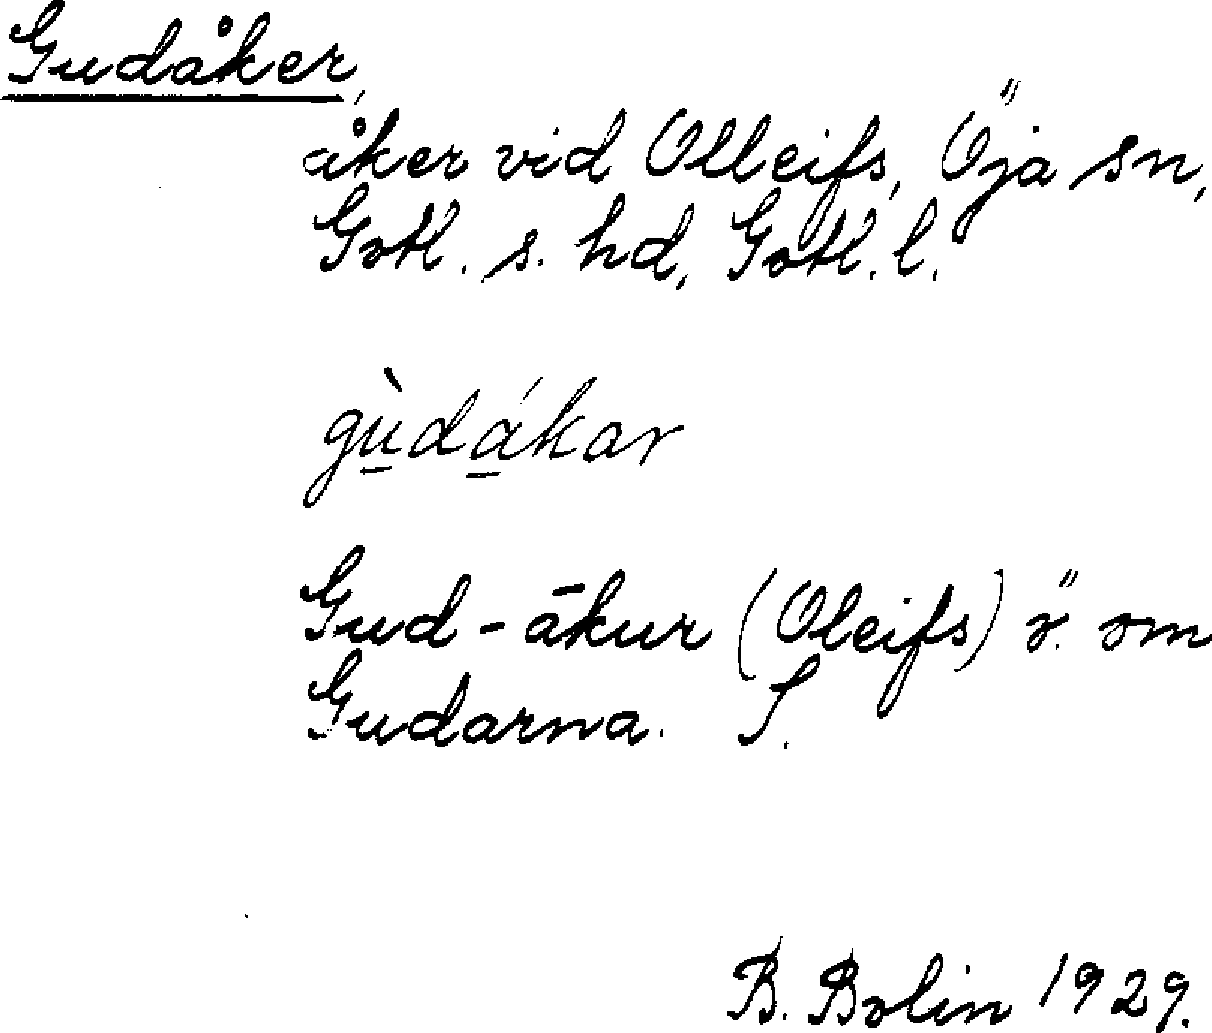 Gudåker,
åker vid Olleifs, Öja sn,
Gotl. s. hd, Gotl. l.
gù̲dá̲kar
Gud-ākur (Oleifs) ö. om
Gudarna. S.
B. Bolin 1929.